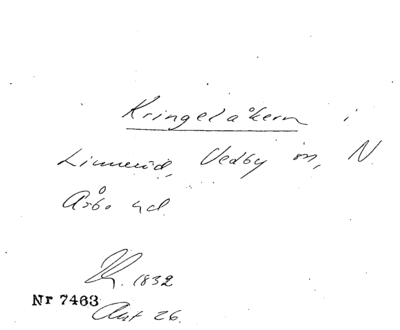 Kringelåkern i
Linneröd, Vedby sn, N.
Åsbo hd.
1832
Nr 7463
Ant 26.